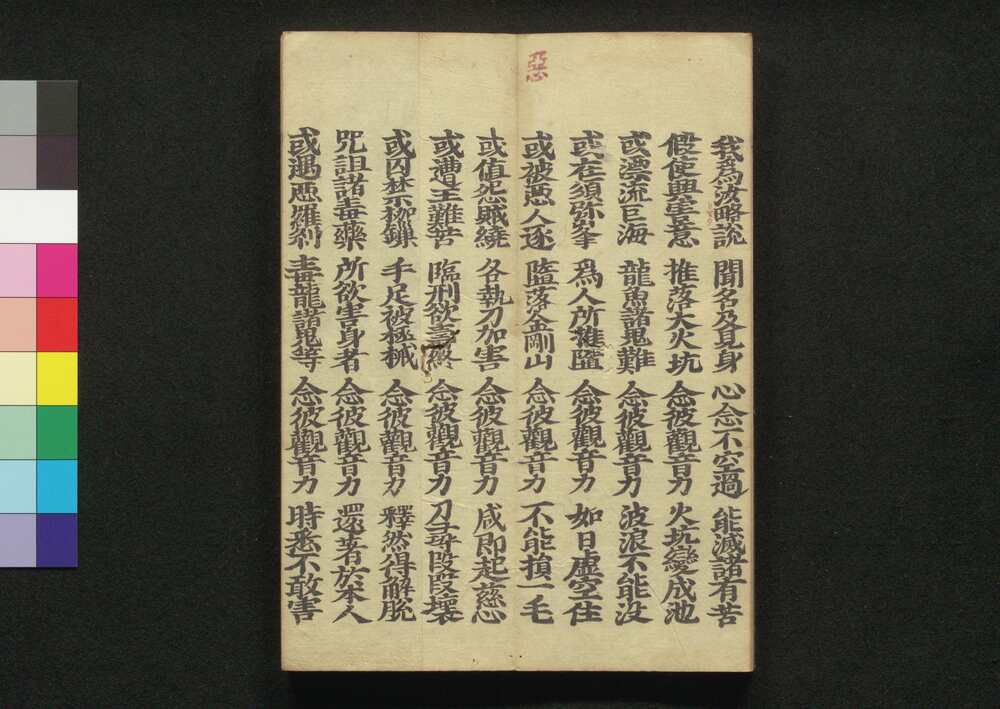 惡
我爲汝略説 聞名及見身 心念不空過 能滅諸有苦
假使興害意 推落大火坑 念彼觀音力 火坑變成池
或漂流巨海 龍魚諸鬼難 念彼觀音力 波浪不能没
或在須弥峯 爲人所推墮 念彼觀音力 如日虚空住
或被惡人逐 墮落金剛山 念彼觀音力 不能損一毛
或値怨賊繞 各執刀加害 念彼觀音力 咸即起慈心
或遭王難苦 臨刑欲壽終 念彼觀音力 刀尋段段壞
或囚禁枷鏁 手足被杻械 念彼觀音力 釋然得解脱
呪詛諸毒藥 所欲害身者 念彼觀音力 還著於本人
或遇惡羅刹 毒龍諸鬼等 念彼觀音力 時悉不敢害